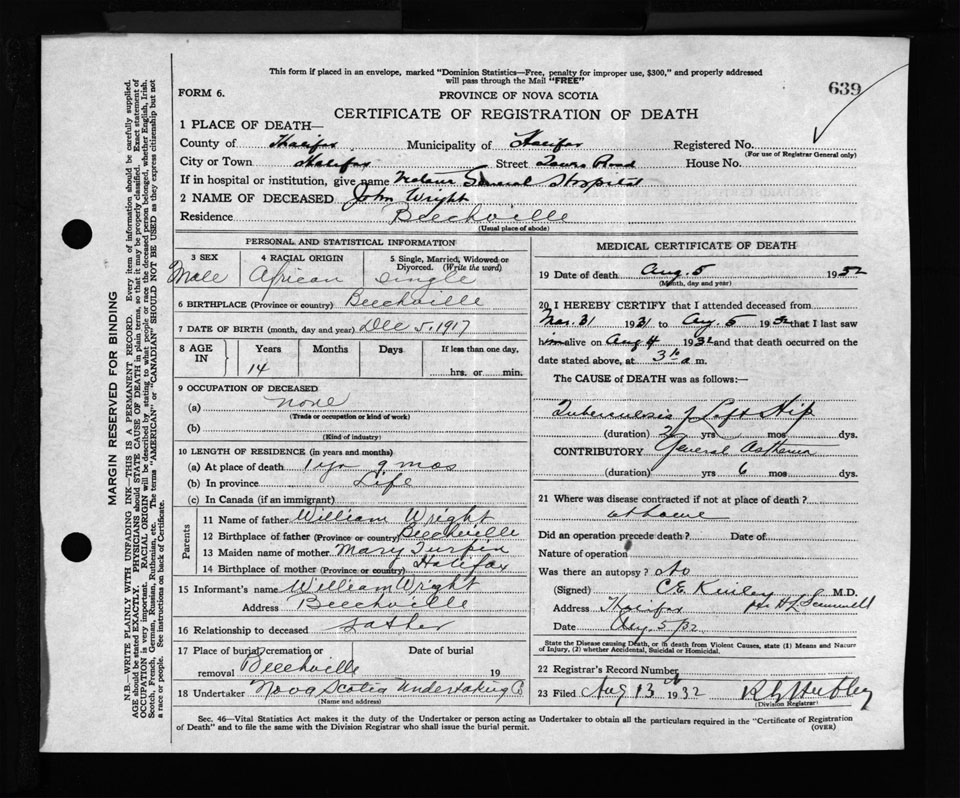 This form if placed in an envelope, marked "Dominion Statistics—Free, penalty for improper use, $300," and properly addressed
will pass through the Mail "FREE"
639
FORM 6.
PROVINCE OF NOVA SCOTIA
CERTIFICATE OF REGISTRATION OF DEATH
1 PLACE OF DEATH—
County of Halifax Municipality of Halifax Registered No.
(For use of Registrar General only)
City or Town Halifax Street Tower Road House No.
If in hospital or institution, give name Victoria General Hospital
2 NAME OF DECEASED John Wright
Residence Beechville
(Usual place of abode)
PERSONAL AND STATISTICAL INFORMATION
3 SEX 4 RACIAL ORIGIN 5 Single, Married, Widowed or
Divorced. (Write the word)
Male African Single
6 BIRTHPLACE (Province or country) Beechville
7 DATE OF BIRTH (month, day and year) Dec 5, 1917
8 AGE IN Years Months Days If less than one day,
14 hrs. or min.
9 OCCUPATION OF DECEASED
(a) none
(Trade or occupation or kind of work)
(b)
(Kind of industry)
10 LENGTH OF RESIDENCE (in years and months)
(a) At place of death 1 yr 9 mos
(b) In province Life
(c) In Canada (if an immigrant)
Parents
11 Name of father William Wright
12 Birthplace of father (Province or country) Beechville
13 Maiden name of mother Mary Turpin
14 Birthplace of mother (Province or country) Halifax
15 Informant's name William Wright
Address Beechville
16 Relationship to deceased father
17 Place of burial, cremation or Date of burial
removal Beechville 19
18 Undertaker Nova Scotia Undertaking Co
(Name and address)
MEDICAL CERTIFICATE OF DEATH
19 Date of death Aug. 5 1932
(Month, day and year)
20 I HEREBY CERTIFY that I attended deceased from
Mar. 31 1931 to Aug. 5 1932 that I last saw
him alive on Aug 4 1932 and that death occurred on the
date stated above, at 3 a m.
The CAUSE of DEATH was as follows:—
Tuberculosis of Left Hip
(duration) 2 yrs mos dys.
CONTRIBUTORY General Asthenia
(duration) yrs 6 mos dys.
21 Where was disease contracted if not at place of death?
at home
Did an operation precede death? Date of
Nature of operation
Was there an autopsy? No
(Signed) C E Kinley M.D.
Address Halifax per H L Scammell
Date Aug 5/32
State the Disease causing Death, or in death from Violent Causes, state (1) Means and Nature
of Injury, (2) whether Accidental, Suicidal or Homicidal.
22 Registrar's Record Number
23 Filed Aug 13 1932
(Division Registrar)
Sec. 46—Vital Statistics Act makes it the duty of the Undertaker or person acting as Undertaker to obtain all the particulars required in the "Certificate of Registration
of Death" and to file the same with the Division Registrar who shall issue the burial permit.
(OVER)
MARGIN RESERVED FOR BINDING
N.B.—WRITE PLAINLY WITH UNFADING INK—THIS IS A PERMANENT RECORD. Every item of information should be carefully supplied.
AGE should be stated EXACTLY. PHYSICIANS should STATE CAUSE OF DEATH in plain terms, so that it may be properly classified. Exact statement of
OCCUPATION is very important. RACIAL ORIGIN will be described by stating to what people or race the deceased person belonged, whether English, Irish,
Scotch, French, German, Russian, Ruthenian, etc. The terms "AMERICAN" or "CANADIAN" SHOULD NOT BE USED as they express citizenship but not
a race or people. See instructions on back of Certificate.